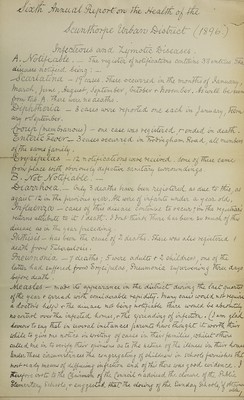 Sixth Annual Report on the Health of the
Scunthorpe Urban District (1896)
Infectious and Zymotic Diseases
A. Notifiable. The register of notifications contains 38 entries. The
disease notified being:—
Scarlatina — 19 cases. These occurred in the months of January,
March, June, August, September, October & November. As will be seen
from the there were no deaths.
Diphtheria — 3 cases were reported one each in January, February
and September.
Croup (membranous) — one case was registered, & ended in death.
Enteric Fever — 3 cases occurred in Frodingham Road, all members
of the same family.
Erysipelas — 12 notifications were received. Some of these came
from places with sanitary surroundings.
B. Not Notifiable
Diarrhoea — Only 3 deaths have been registered as due to this, as
against 12 in the previous year. All were of infants under a year old.
Influenza — cases of this disease continue to occur, for the
returns attribute to it 1 death. I do not think there has been as much of the
disease as in the year preceding.
Phthisis — has been the cause of 2 deaths. There was also registered 1
death from Tuberculosis.
Pneumonia — 7 deaths, 5 were adults & 2 children, one of the
latter had suffered from Erysipelas, Pneumonia supervening three days
before death.
Measles — made its appearance in the district during the last quarter
of the year & spread with considerable rapidity. Many cases would not
a doctor's help & the disease not being notifiable, there would be absolutely
no control over the infected houses, & the spreading of infection. I am glad
however to say that in several instances parents have thought it worth their
while to give me notice in writing of cases in their families, whilst others
called on me to enquire their opinions as to the nature of the illness in their houses.
Under these circumstances the congregating of children in schools furnishes the
most ready means of diffusing infection and of this there was good evidence. I
therefore wrote to the Chairman of the Council & advised the closure of the Public
Elementary Schools, & suggested that the closing of the Sunday Schools, if